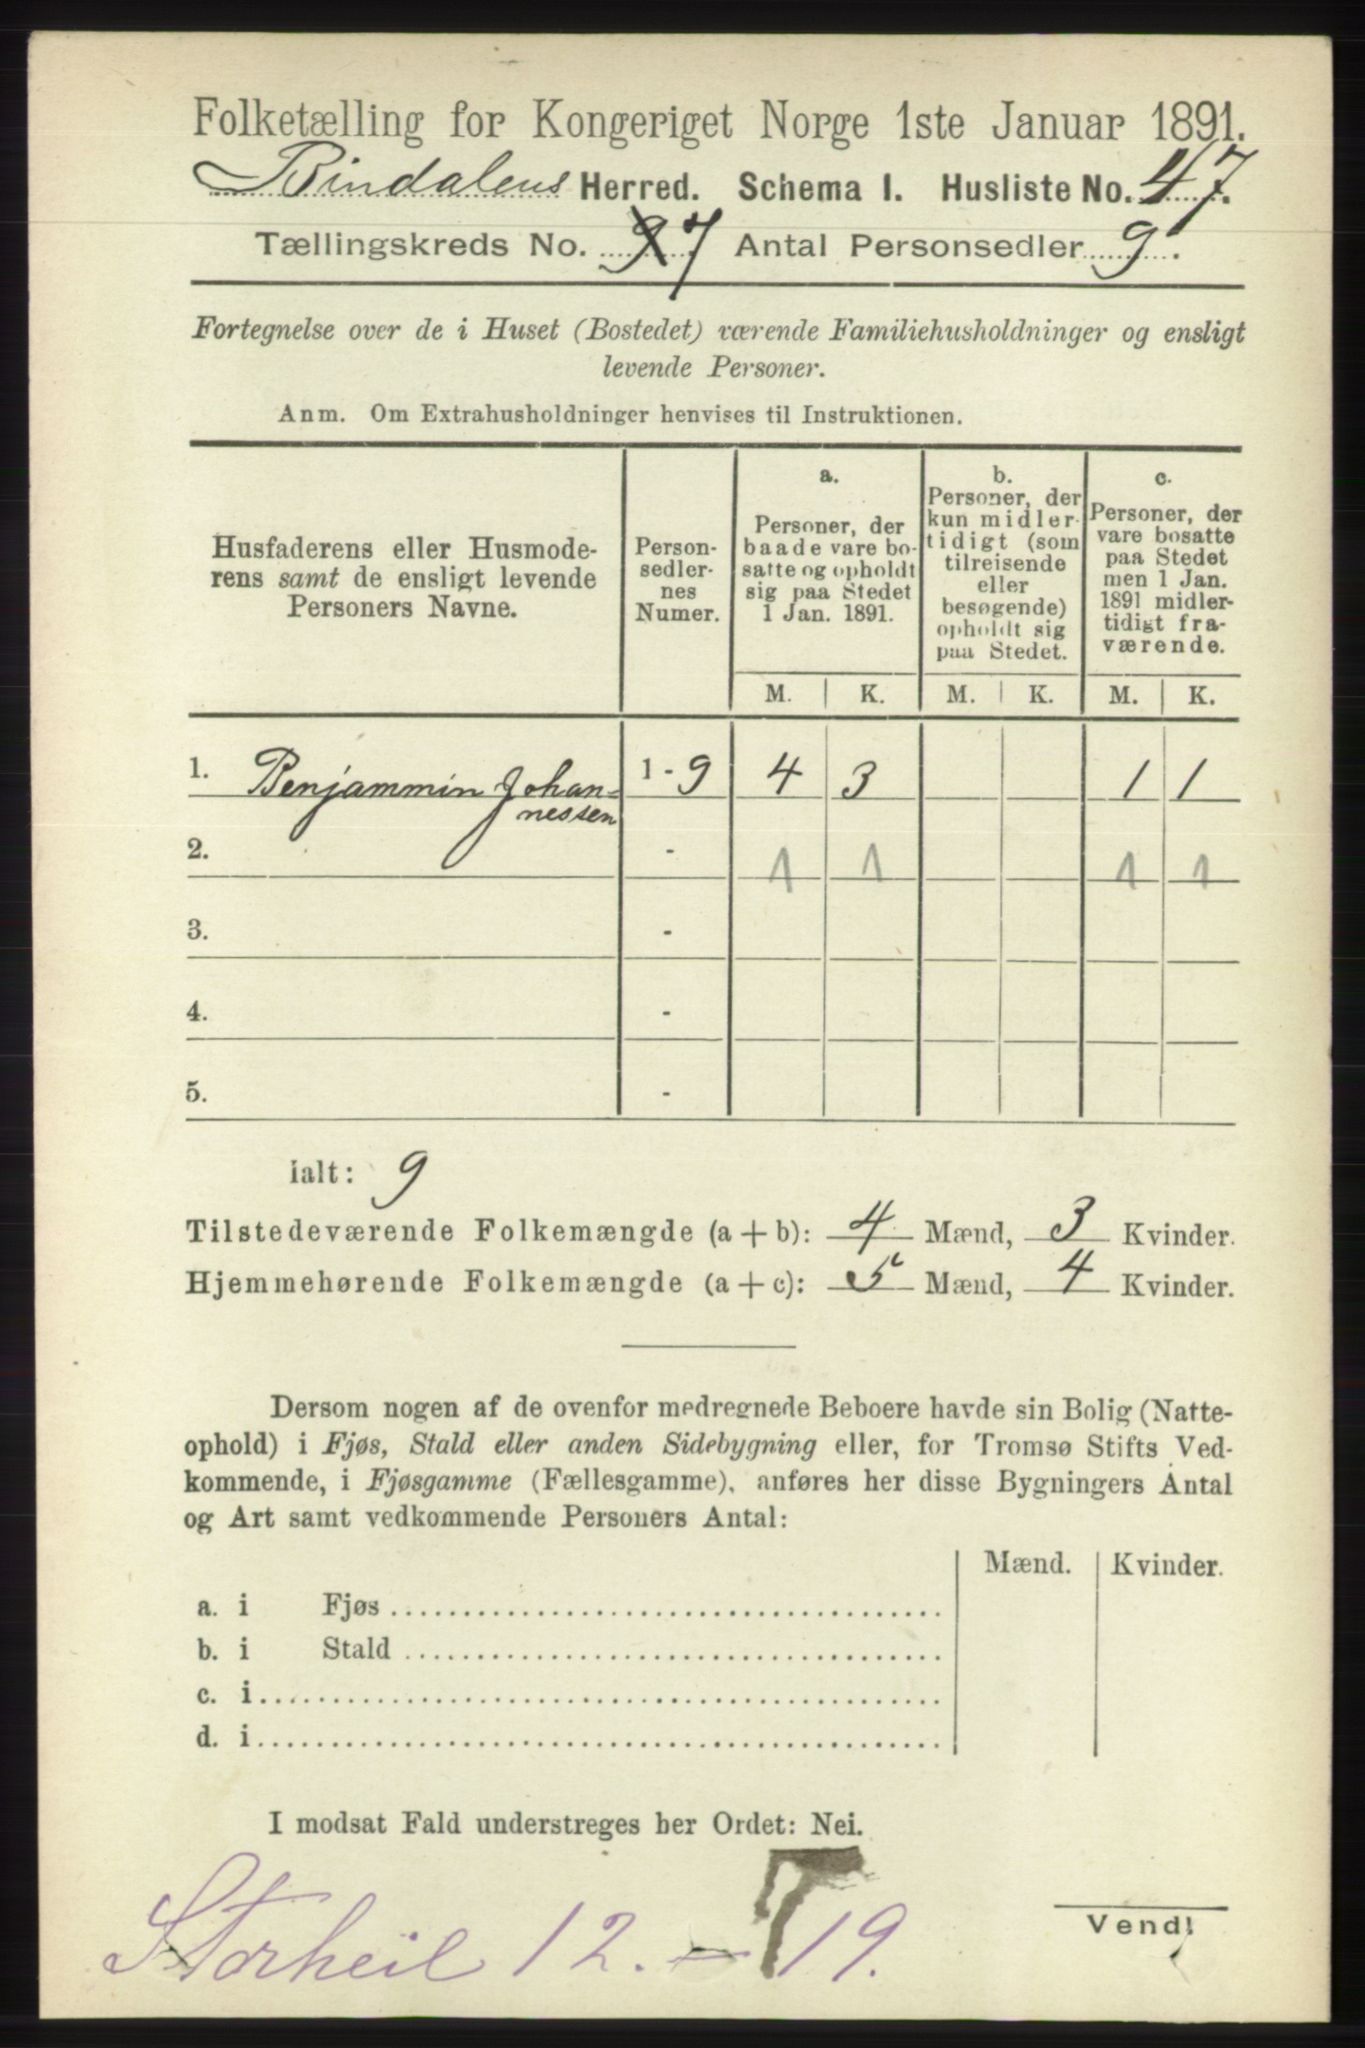 Folketælling for Kongeriget Norge 1ste Januar 1891.
Bindalens Herred. Schema I. Husliste No. 47.
Tællingskreds No. 9 7 Antal Personsedler 9.
Fortegnelse over de i Huset (Bostedet) værende Familiehusholdninger og ensligt
levende Personer.
Anm. Om Extrahusholdninger henvises til Instruktionen.
Husfaderens eller Husmode-
rens samt de ensligt levende
Personers Navne.
Person-
sedler-
nes
Numer.
a.
Personer, der
baade vare bo-
satte og opholdt
sig paa Stedet
1 Jan. 1891.
b.
Personer, der
kun midler-
tidigt (som
tilreisende
eller
besøgende)
opholdt sig
paa Stedet.
c.
Personer, der
vare bosatte
paa Stedet
men 1 Jan.
1891 midler-
tidigt fra-
værende.
M. K. M. K. M. K.
1. Benjammin Johan- 1 - 9 4 3 1 1
nessen
2. - 1 1 1 1
3. -
4. -
5. -
ialt: 9
Tilstedeværende Folkemængde (a + b): 4 Mænd, 3 Kvinder.
Hjemmehørende Folkemængde (a + c): 5 Mænd, 4 Kvinder.
Dersom nogen af de ovenfor medregnede Beboere havde sin Bolig (Natte-
ophold) i Fjøs, Stald eller anden Sidebygning eller, for Tromsø Stifts Ved-
kommende, i Fjøsgamme (Fællesgamme), anføres her disse Bygningers Antal
og Art samt vedkommende Personers Antal:
Mænd. Kvinder.
a. i Fjøs
b. i Stald
c. i
d. i
I modsat Fald understreges her Ordet: Nei.
Storheil 12. - T 19.
Vend!